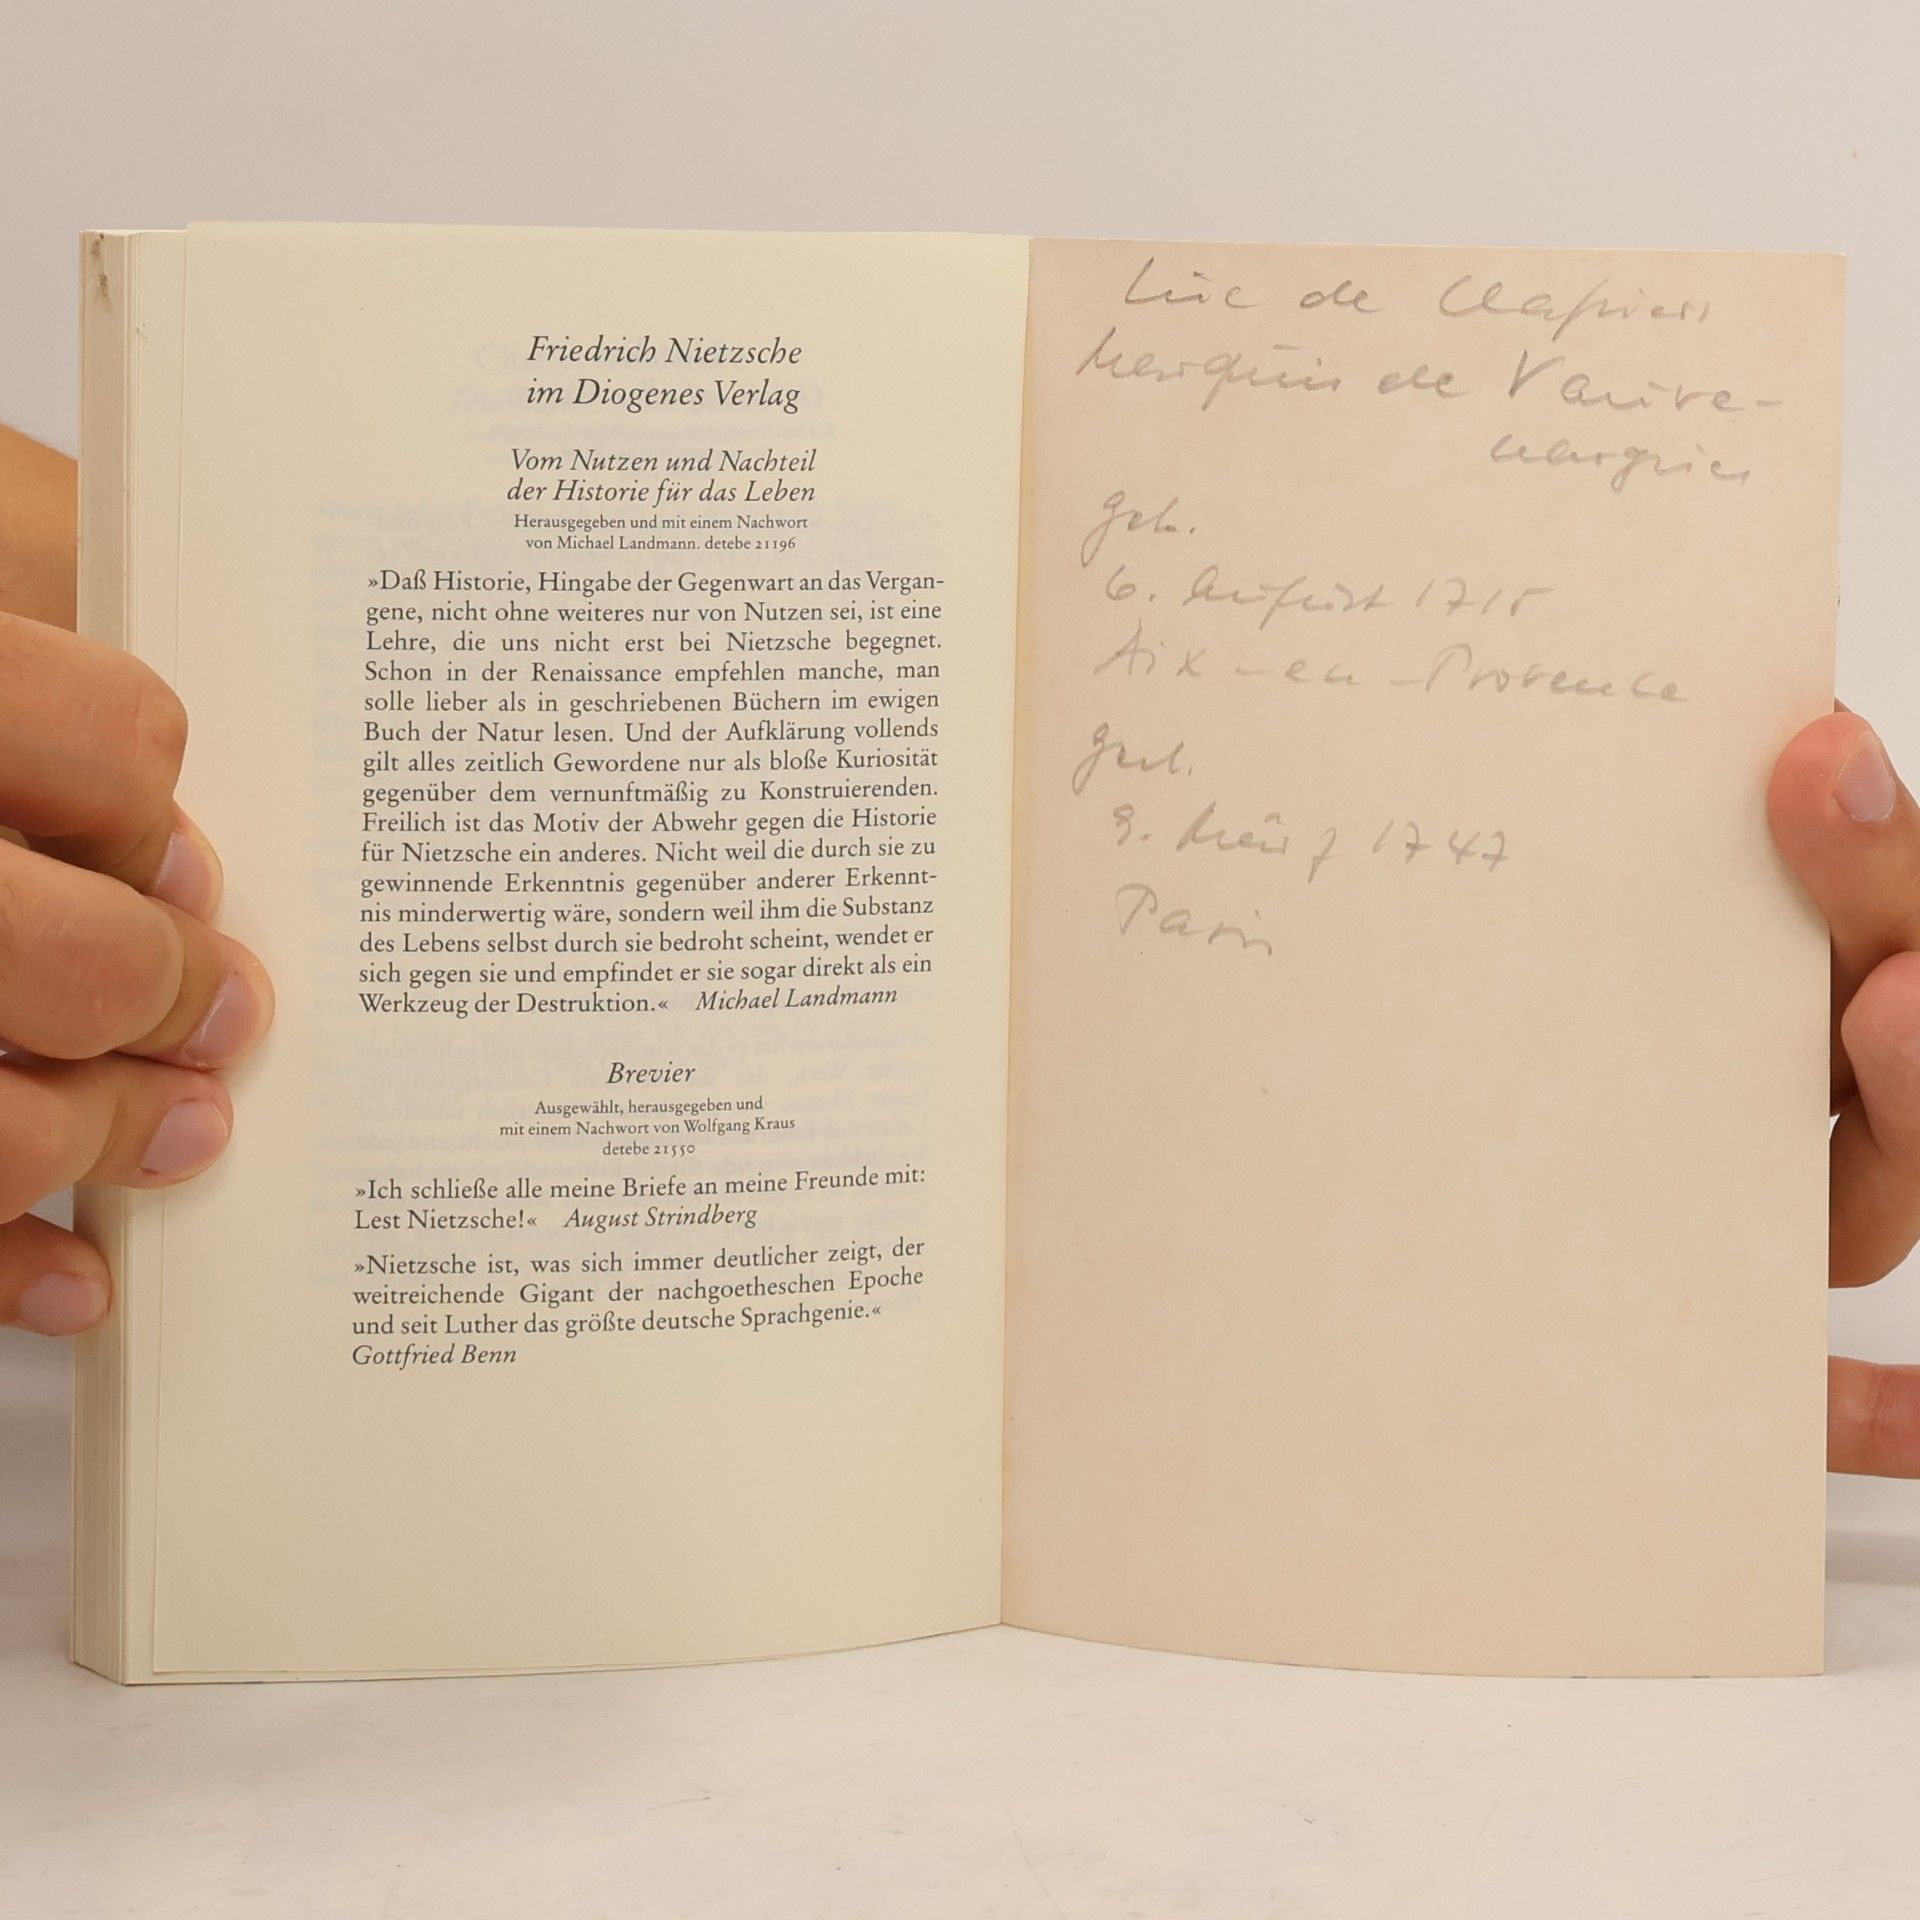 Friedrich Nietzsche
im Diogenes Verlag
Vom Nutzen und Nachteil
der Historie für das Leben
Herausgegeben und mit einem Nachwort
von Michael Landmann. detebe 21196
»Daß Historie, Hingabe der Gegenwart an das Vergan-
gene, nicht ohne weiteres nur von Nutzen sei, ist eine
Lehre, die uns nicht erst bei Nietzsche begegnet.
Schon in der Renaissance empfehlen manche, man
solle lieber als in geschriebenen Büchern im ewigen
Buch der Natur lesen. Und der Aufklärung vollends
gilt alles zeitlich Gewordene nur als bloße Kuriosität
gegenüber dem vernunftmäßig zu Konstruierenden.
Freilich ist das Motiv der Abwehr gegen die Historie
für Nietzsche ein anderes. Nicht weil die durch sie zu
gewinnende Erkenntnis gegenüber anderer Erkennt-
nis minderwertig wäre, sondern weil ihm die Substanz
des Lebens selbst durch sie bedroht scheint, wendet er
sich gegen sie und empfindet er sie sogar direkt als ein
Werkzeug der Destruktion.« Michael Landmann
Brevier
Ausgewählt, herausgegeben und
mit einem Nachwort von Wolfgang Kraus
detebe 21550
»Ich schließe alle meine Briefe an meine Freunde mit:
Lest Nietzsche!« August Strindberg
»Nietzsche ist, was sich immer deutlicher zeigt, der
weitreichende Gigant der nachgoetheschen Epoche
und seit Luther das größte deutsche Sprachgenie.«
Gottfried Benn
Luc de Clapiers
Marquis de Vauve-
nargues
geb.
6. August 1715
Aix-en-Provence
gest.
9. März 1747
Paris